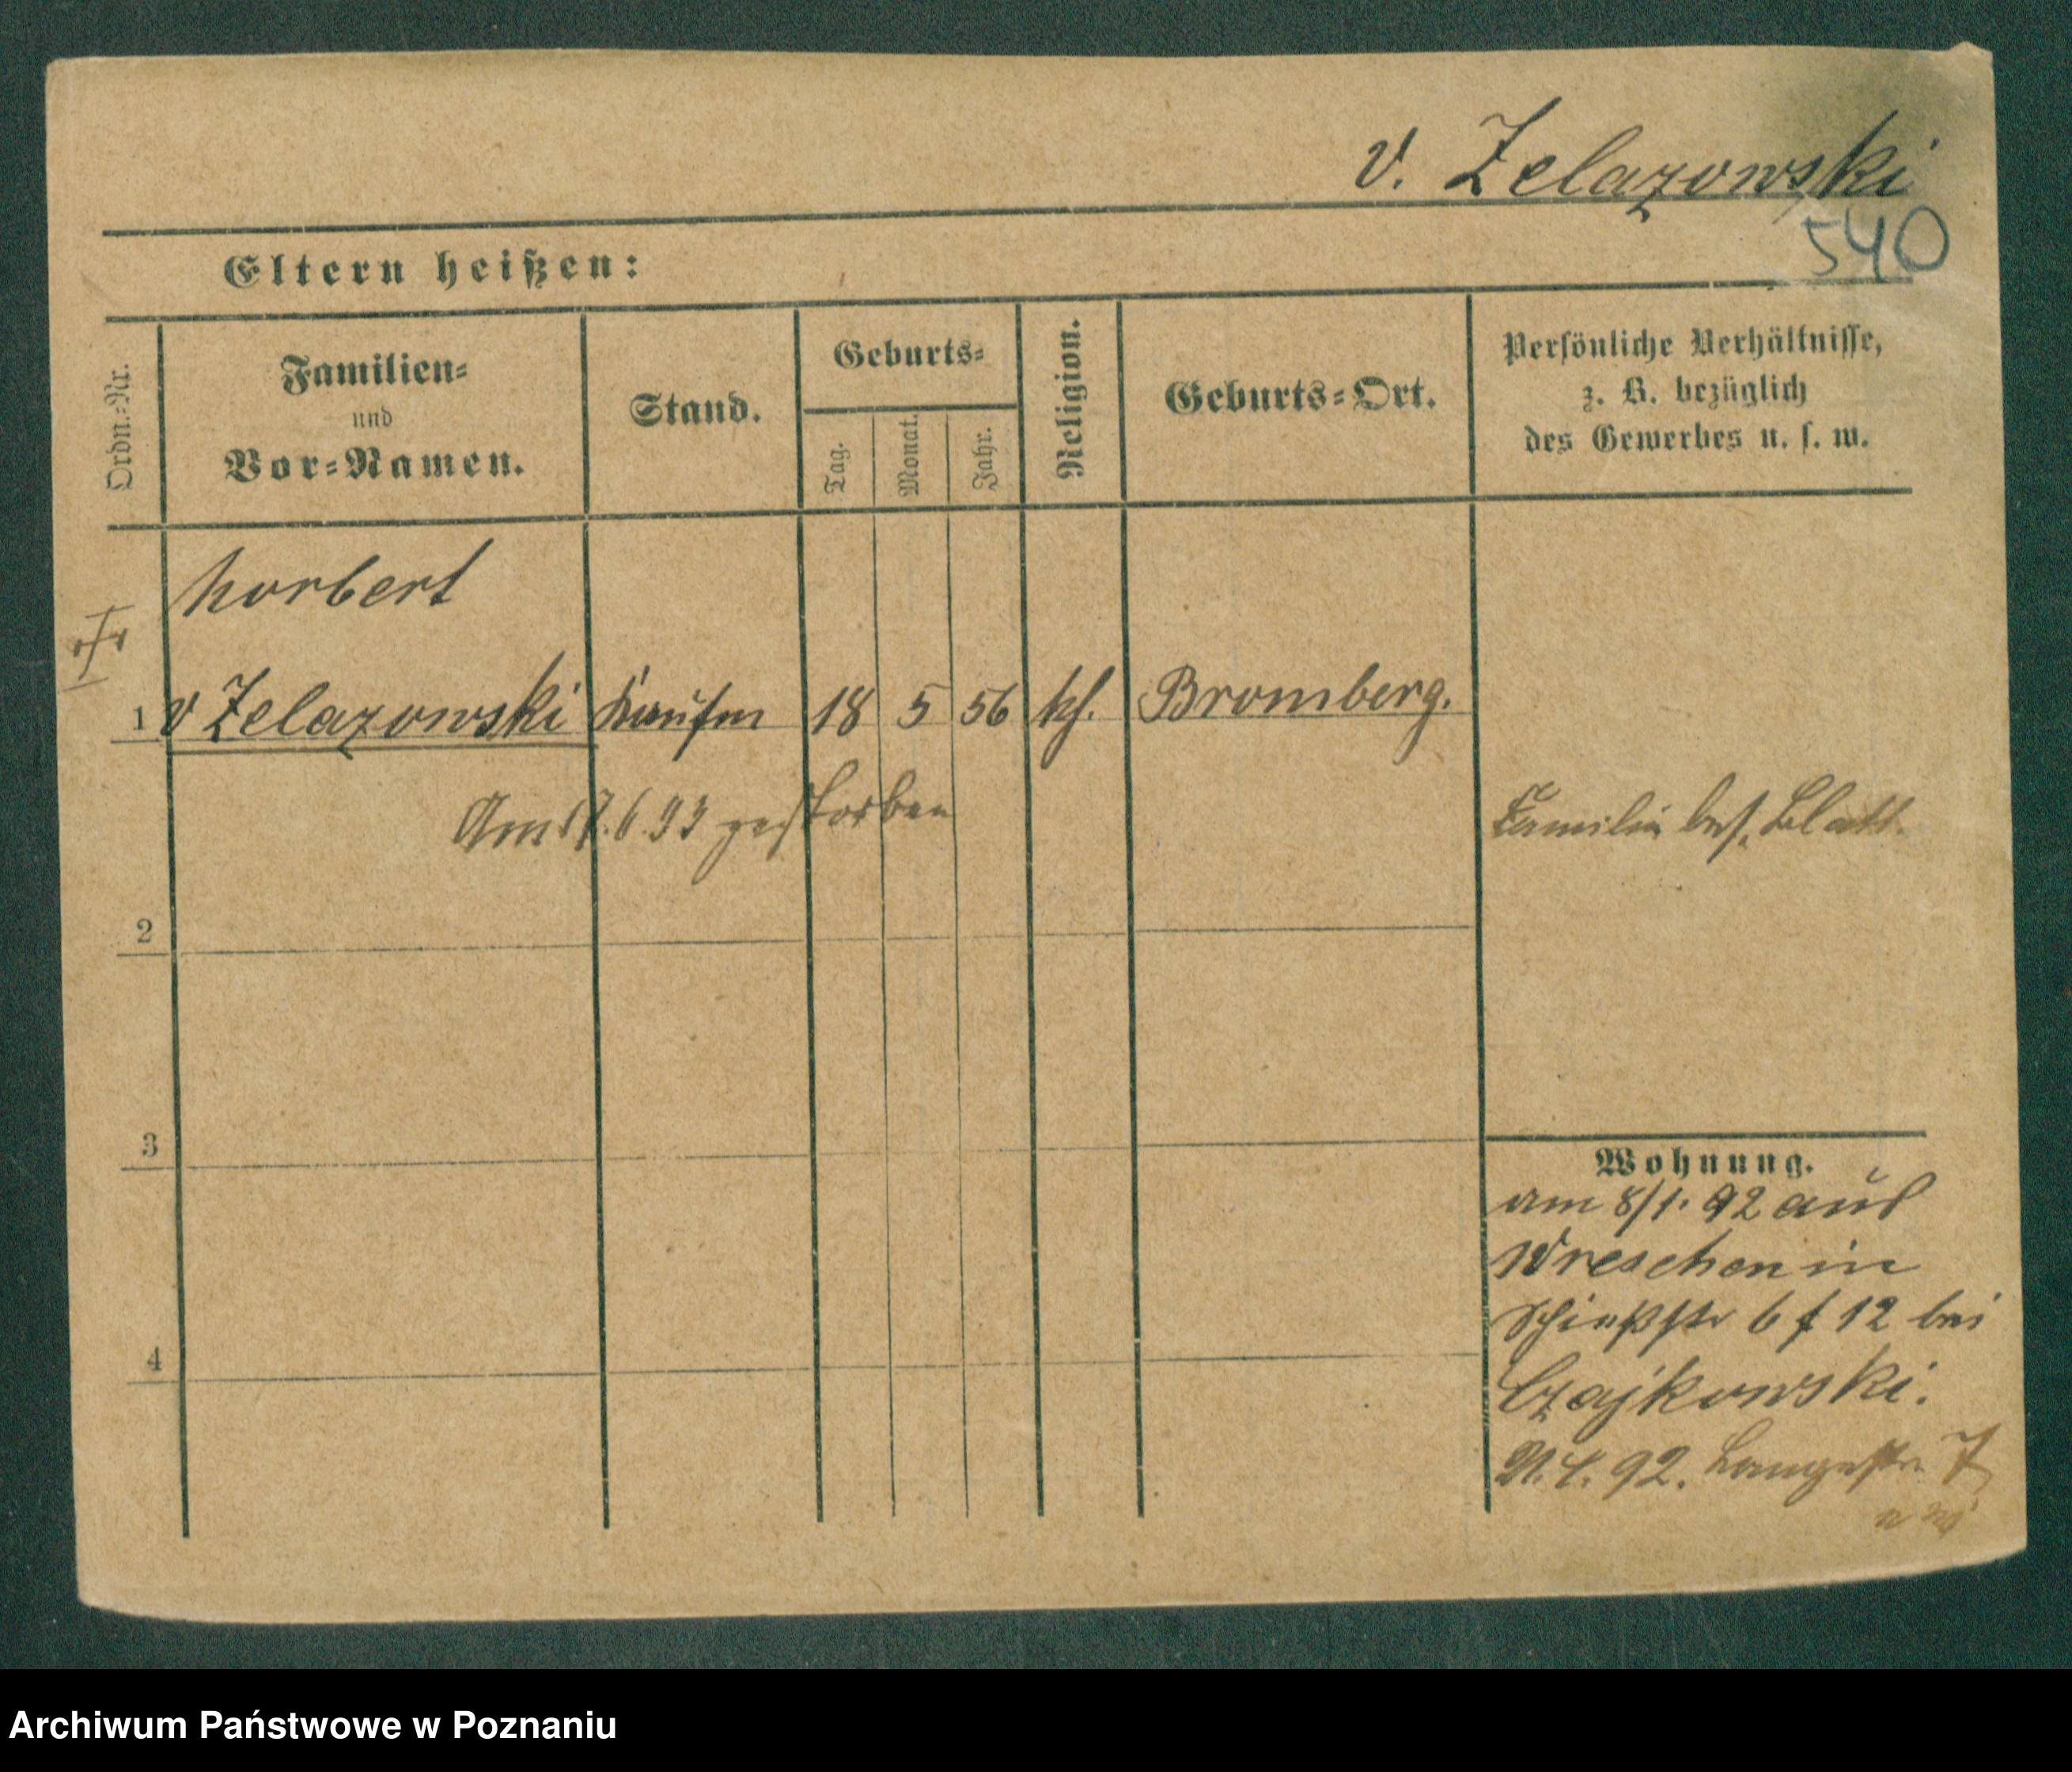 v. Zelazowski
540
Eltern heißen:
Ordn.-Nr.
Familien-
und
Vor-Namen.
Stand.
Geburts-
Tag.
Monat.
Jahr.
Religion.
Geburts-Ort.
Persönliche Verhältnisse,
z. B. bezüglich
des Gewerbes u. s. w.
Norbert
1 v Zelazowski Kaufm 18 5 56 kth. Bromberg.
Am 17.6.93 gestorben
Familie bes. Blatt.
2
3
4
Wohnung.
am 8/1. 92 aus
Wreschen in
Schießstr 6 f 12 bei
Czajkowski.
21.4.92. Langestr. 7
Archiwum Państwowe w Poznaniu